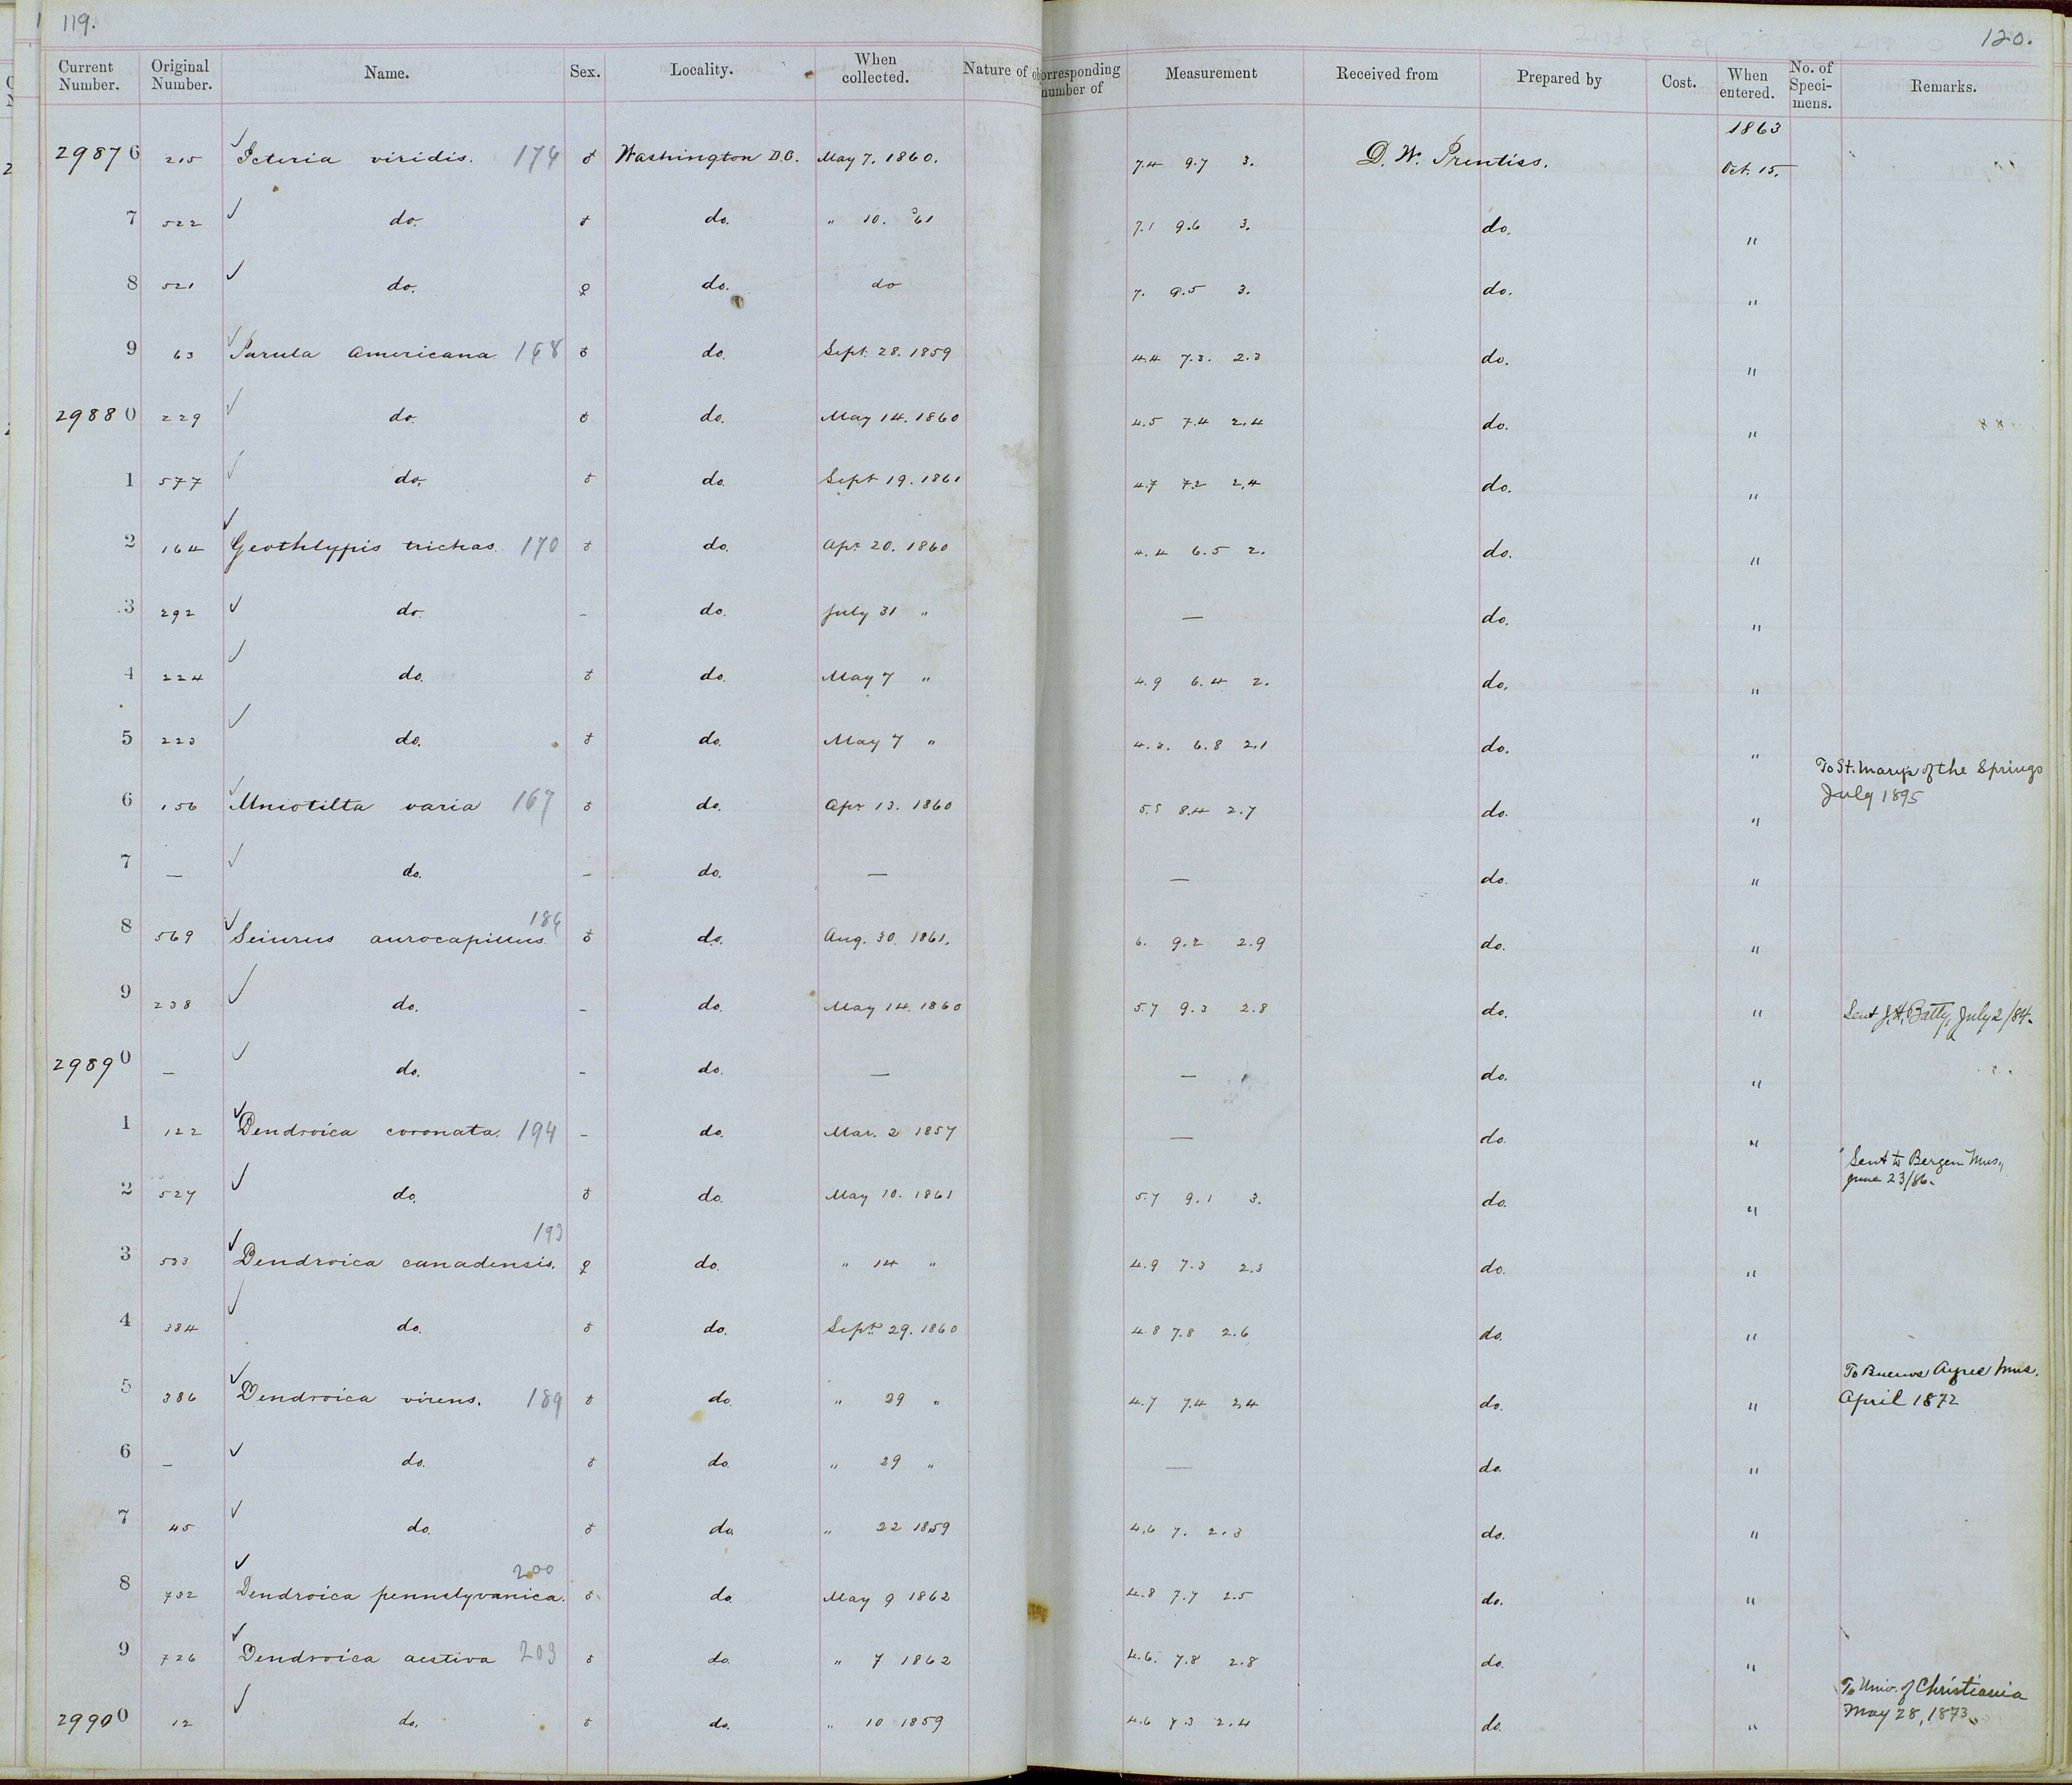 119.
120.
Current Number. Original Number. Name. Sex. Locality. When collected. Nature of corresponding number of Measurement Received from Prepared by Cost. When entered. No. of Speci-mens. Remarks.
1863
29876 215 ✓ Icteria viridis. 176 ♂ Washington D.C. May 7. 1860. 7.4 9.7 3. D. W. Prentiss. Oct. 15.
7 522 ✓ do. ♂ do. " 10. '61 7.1 9.6 3. do. "
8 521 ✓ do. ♀ do. do 7. 9.5 3. do. "
9 63 ✓ Parula americana 168 ♂ do. Sept. 28. 1859 4.4 7.3. 2.3 do. "
29880 229 ✓ do. ♂ do. May 14. 1860 4.5 7.4 2.4 do. "
1 577 ✓ do. ♂ do. Sept 19. 1861 4.7 7.2 2.4 do. "
2 164 ✓ Geothlypis trichas. 170 ♂ do. Apr. 20. 1860 4.4 6.5 2. do. "
3 292 ✓ do. – do. July 31 " — do. "
4 224 ✓ do. ♂ do. May 7 " 4.9 6.4 2. do. "
5 223 ✓ do. ♂ do. May 7 " 4.2. 6.8 2.1 do. "
6 156 ✓ Mniotilta varia 167 ♂ do. Apr. 13. 1860 5.5 8.4 2.7 do. " To St. Mary's of the Springs
July 1895
7 — ✓ do. – do. — — do. "
8 569 ✓ Seiurus aurocapillus. 186 ♂ do. Aug. 30. 1861. 6. 9.2 2.9 do. "
9 238 ✓ do. – do. May 14. 1860 5.7 9.3 2.8 do. " Sent J. H. Batty, July 2/84.
29890 — ✓ do. – do. — — do. "
1 122 ✓ Dendroica coronata. 194 – do. Mar. 2 1857 — do. "
2 527 ✓ do. ♂ do. May 10. 1861 5.7 9.1 3. do. " Sent to Bergen Mus.,
June 23/86.
3 533 ✓ Dendroica canadensis. 193 ♀ do. " 14 " 4.9 7.3 2.3 do. "
4 384 ✓ do. ♂ do. Sept. 29. 1860 4.8 7.8 2.6 do. "
5 386 ✓ Dendroica virens. 189 ♂ do. " 29 " 4.7 7.4 2.4 do. " To Buenos Ayres Mus.
April 1872
6 — ✓ do. ♂ do. " 29 " — do. "
7 45 ✓ do. ♂ do. " 22 1859 4.6 7. 2.3 do. "
8 732 ✓ Dendroica pennslyvanica. 200 ♂ do. May 9 1862 4.8 7.7 2.5 do. "
9 726 ✓ Dendroica aestiva 203 ♂ do. " 7 1862 4.6. 7.8 2.8 do. "
29900 12 ✓ do. ♂ do. " 10 1859 4.6 7.3 2.4 do. " To Univ. of Christiania
May 28, 1873.